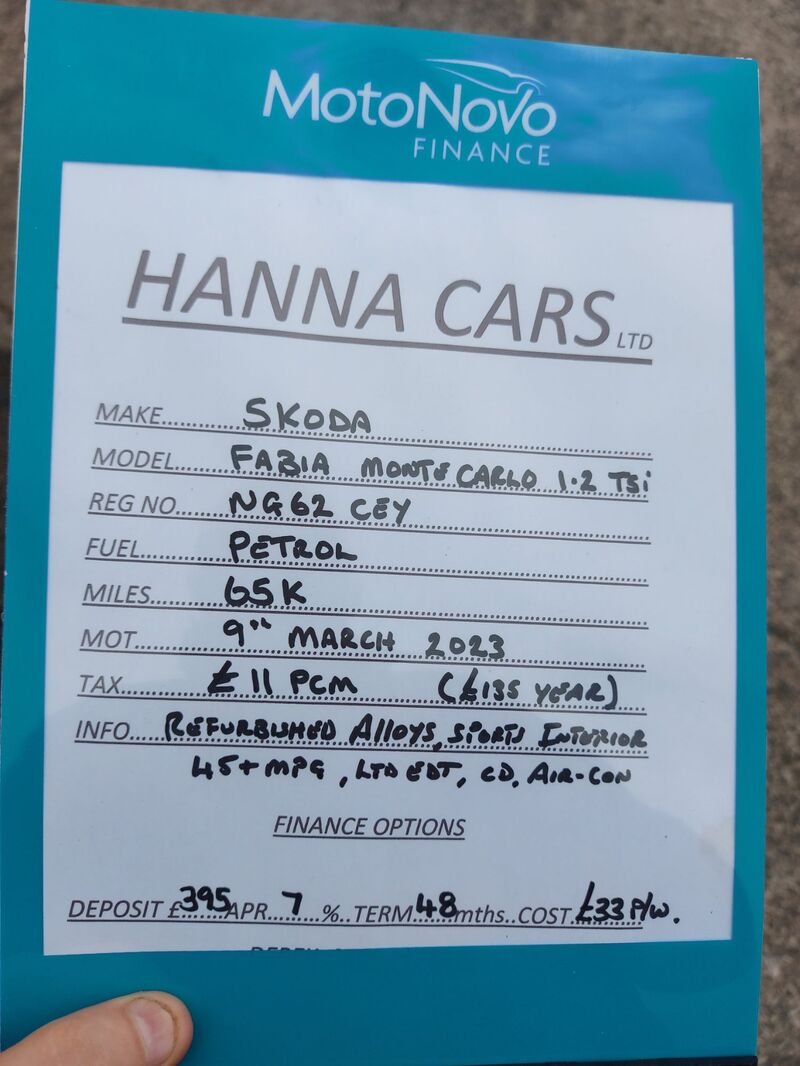 MOTONOVO
FINANCE
HANNA CARS LTD
MAKE......SKODA
MODEL...FABIA MONTE CARLO 1.2 TSi
REG NO....NG62 CEY
FUEL......PETROL
MILES......65K
MOT......9TH MARCH 2023
TAX......£11 PCM (£135 YEAR)
INFO....REFURBISHED Alloys, SPORTS INTERIOR
45+ MPG, LTD EDT, CD, AIR-CON
FINANCE OPTIONS
DEPOSIT £395 APR 7 %..TERM 48 mths..COST £33 P/W.